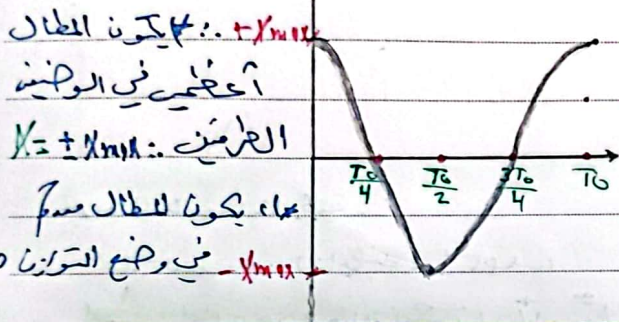 ∴ يكون المطال
أعظمي في الوضعين
الطرفين: X = ± Xmax
يكون المطال معدم
في وضع التوازن
+Xmax
T0/4 T0/2 3T0/4 T0
-Xmax